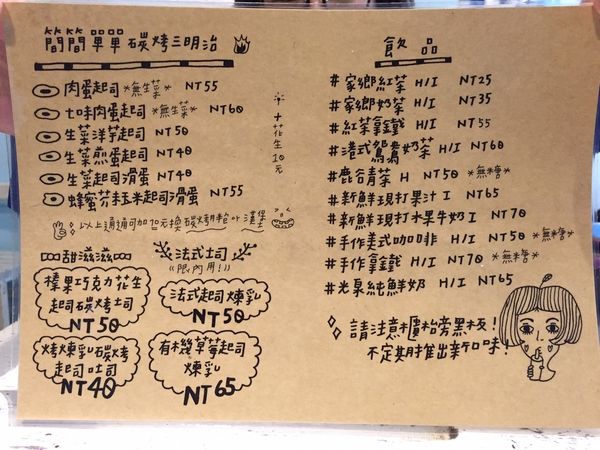 簡簡單單碳烤三明治
肉蛋起司 *無生菜* NT55
七味肉蛋起司 *無生菜* NT60
生菜洋芋起司 NT50
生菜煎蛋起司 NT40
生菜起司滑蛋 NT40
蜂蜜芬玉米起司滑蛋 NT55
※+花生10元
以上通通可加10元換碳烤 or 漢堡
甜滋滋
榛果巧克力花生
起司碳烤土司
NT50
烤煉乳碳烤
起司吐司
NT40
法式土司
《限內用!》
法式起司煉乳
NT50
有機草莓起司
煉乳
NT65
飲品
#家鄉紅茶 H/I NT25
#家鄉奶茶 H/I NT35
#紅茶拿鐵 H/I NT55
#港式鴛鴦奶茶 H/I NT60
#鹿谷青茶 H NT50 *無糖*
#新鮮現打果汁 I NT65
#新鮮現打水果牛奶 I NT70
#手作美式咖啡 H/I NT50 *無糖*
#手作拿鐵 H/I NT70 *無糖*
#光泉純鮮奶 H/I NT65
請注意櫃枱旁黑板!
不定期推出新口味!